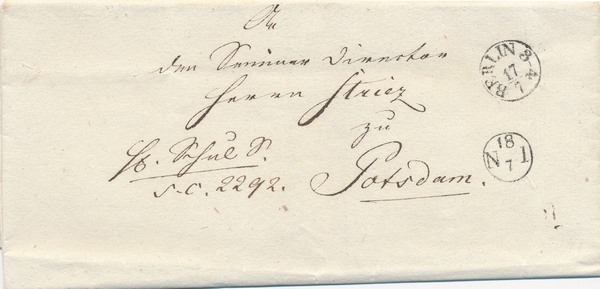 An
den Seminar Director
Herrn Striez
zu
Potsdam.
Hb. Schul S.
s. c. 2292.
BERLIN 3-4
17
7
18
N 1
7